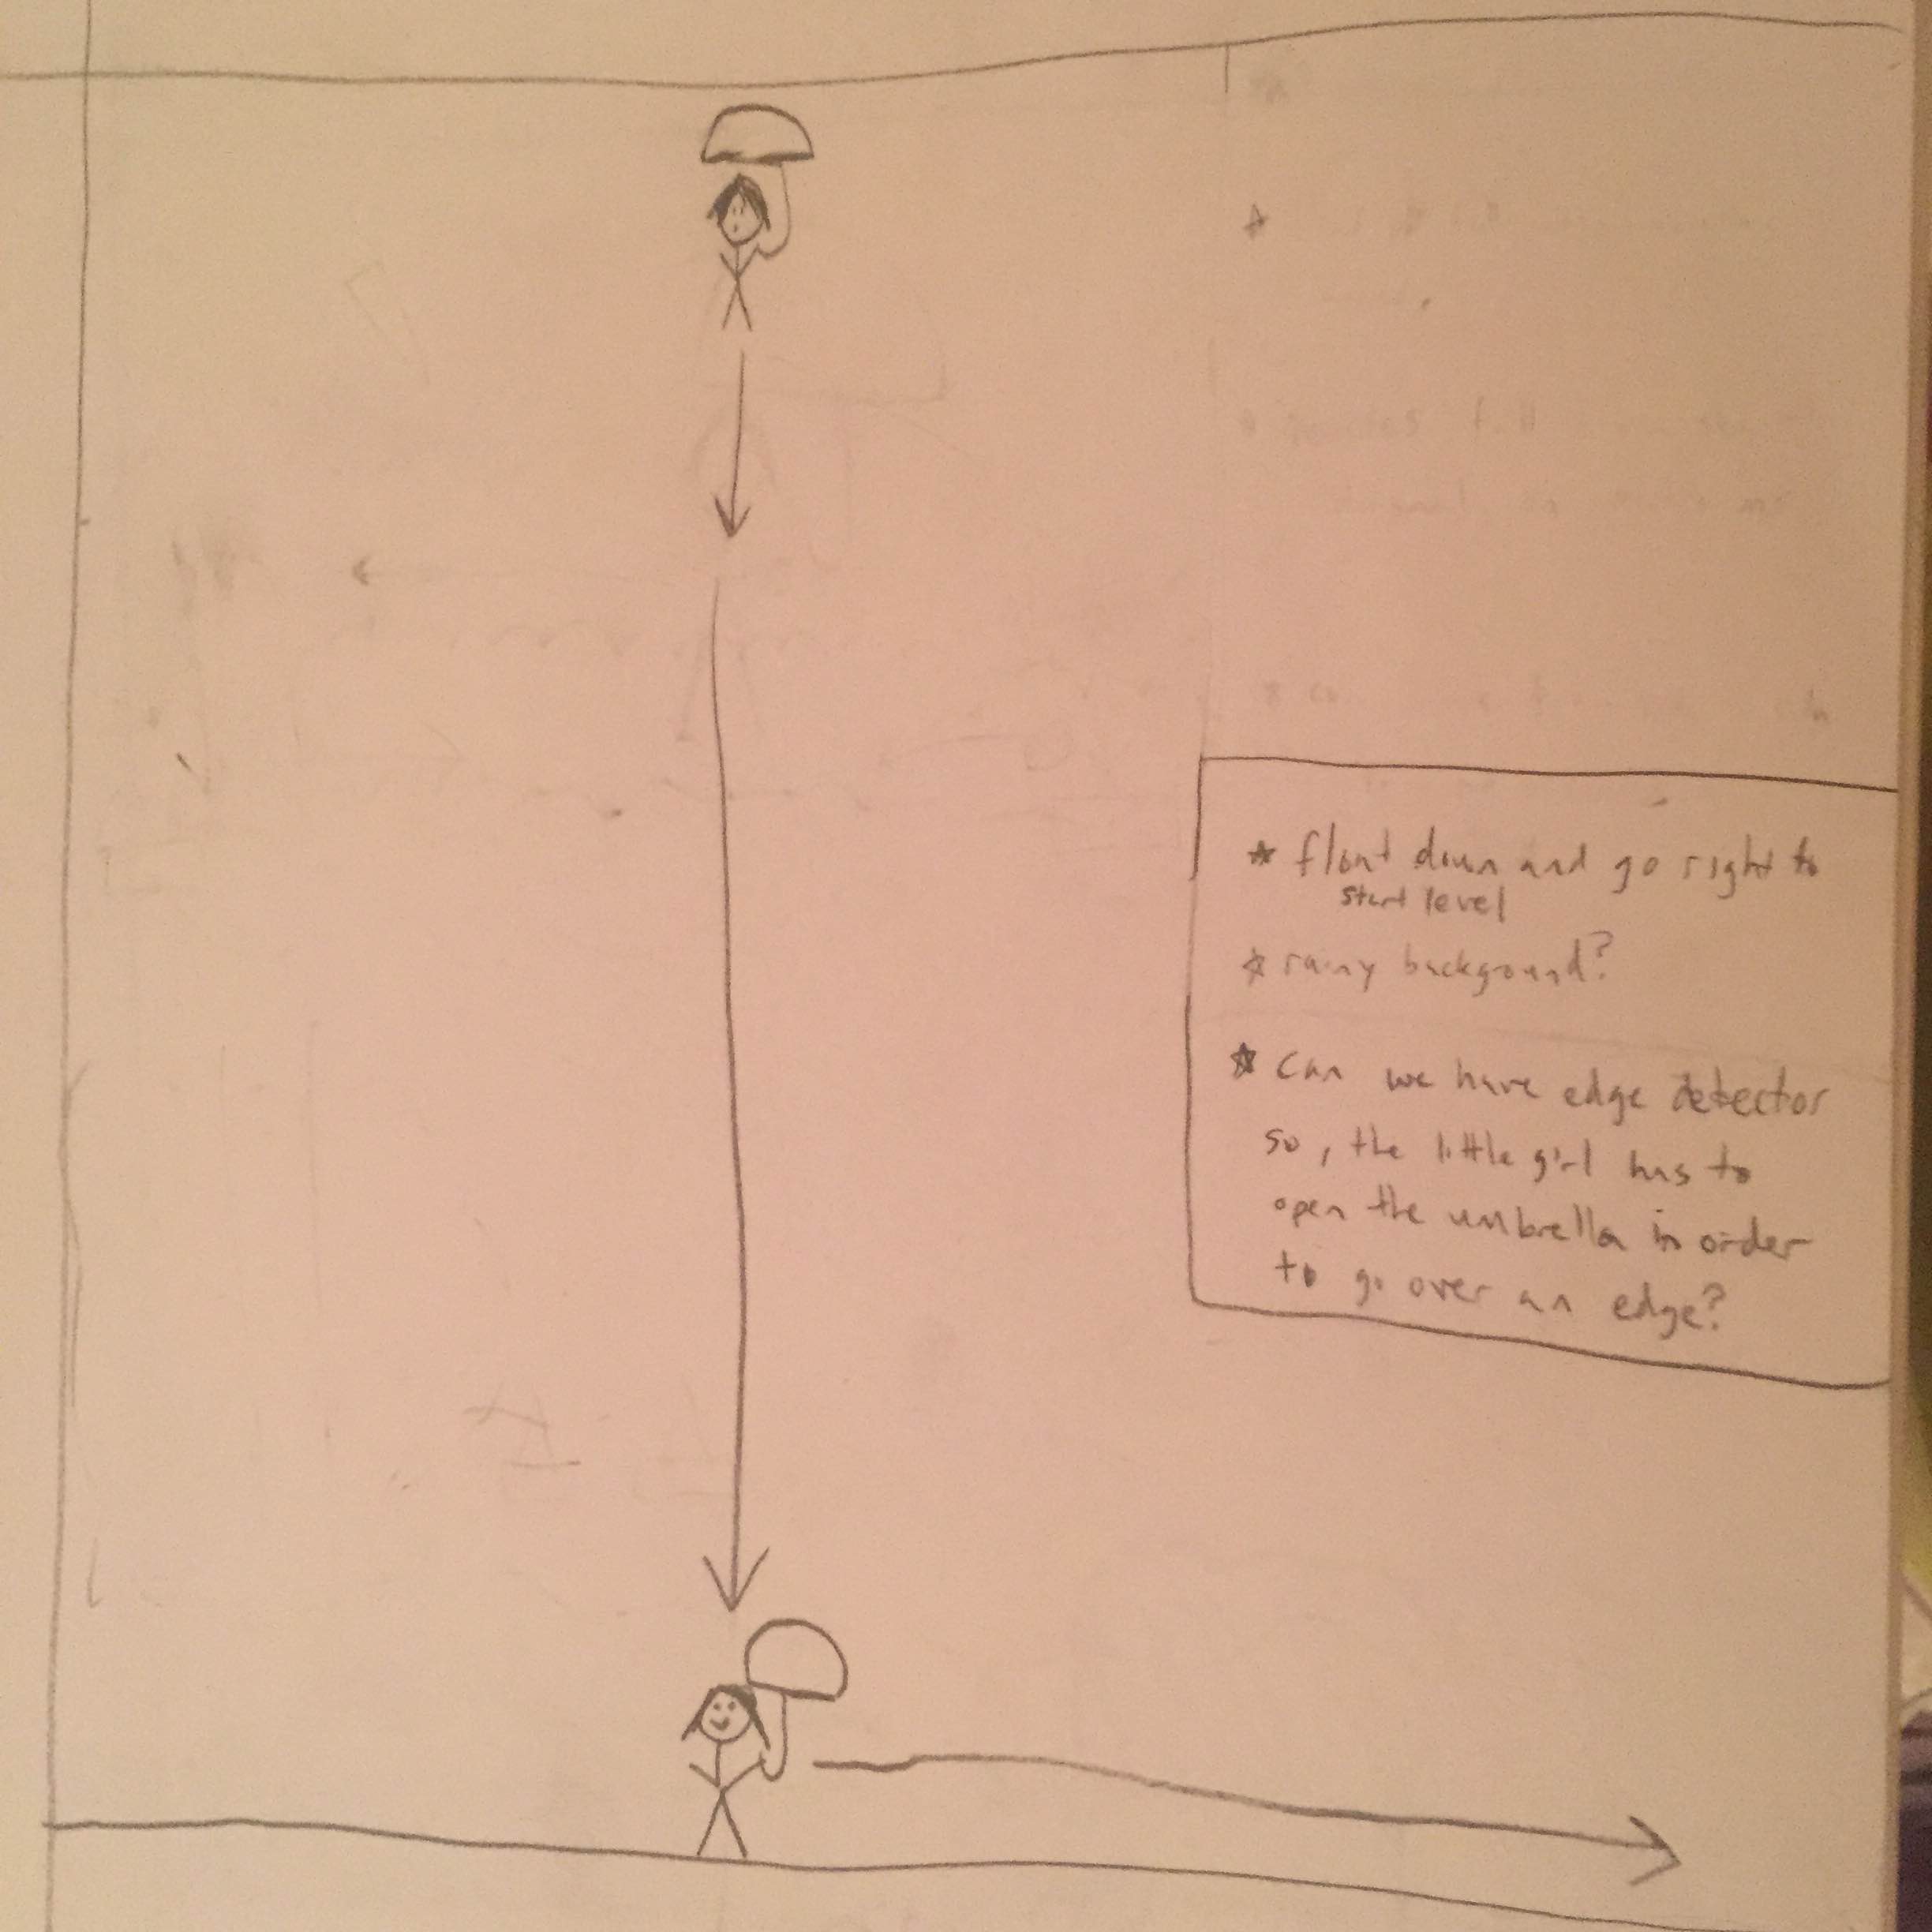 * float down and go right to
start level
* rainy background?
* Can we have edge detector
so, the little girl has to
open the umbrella in order
to go over an edge?